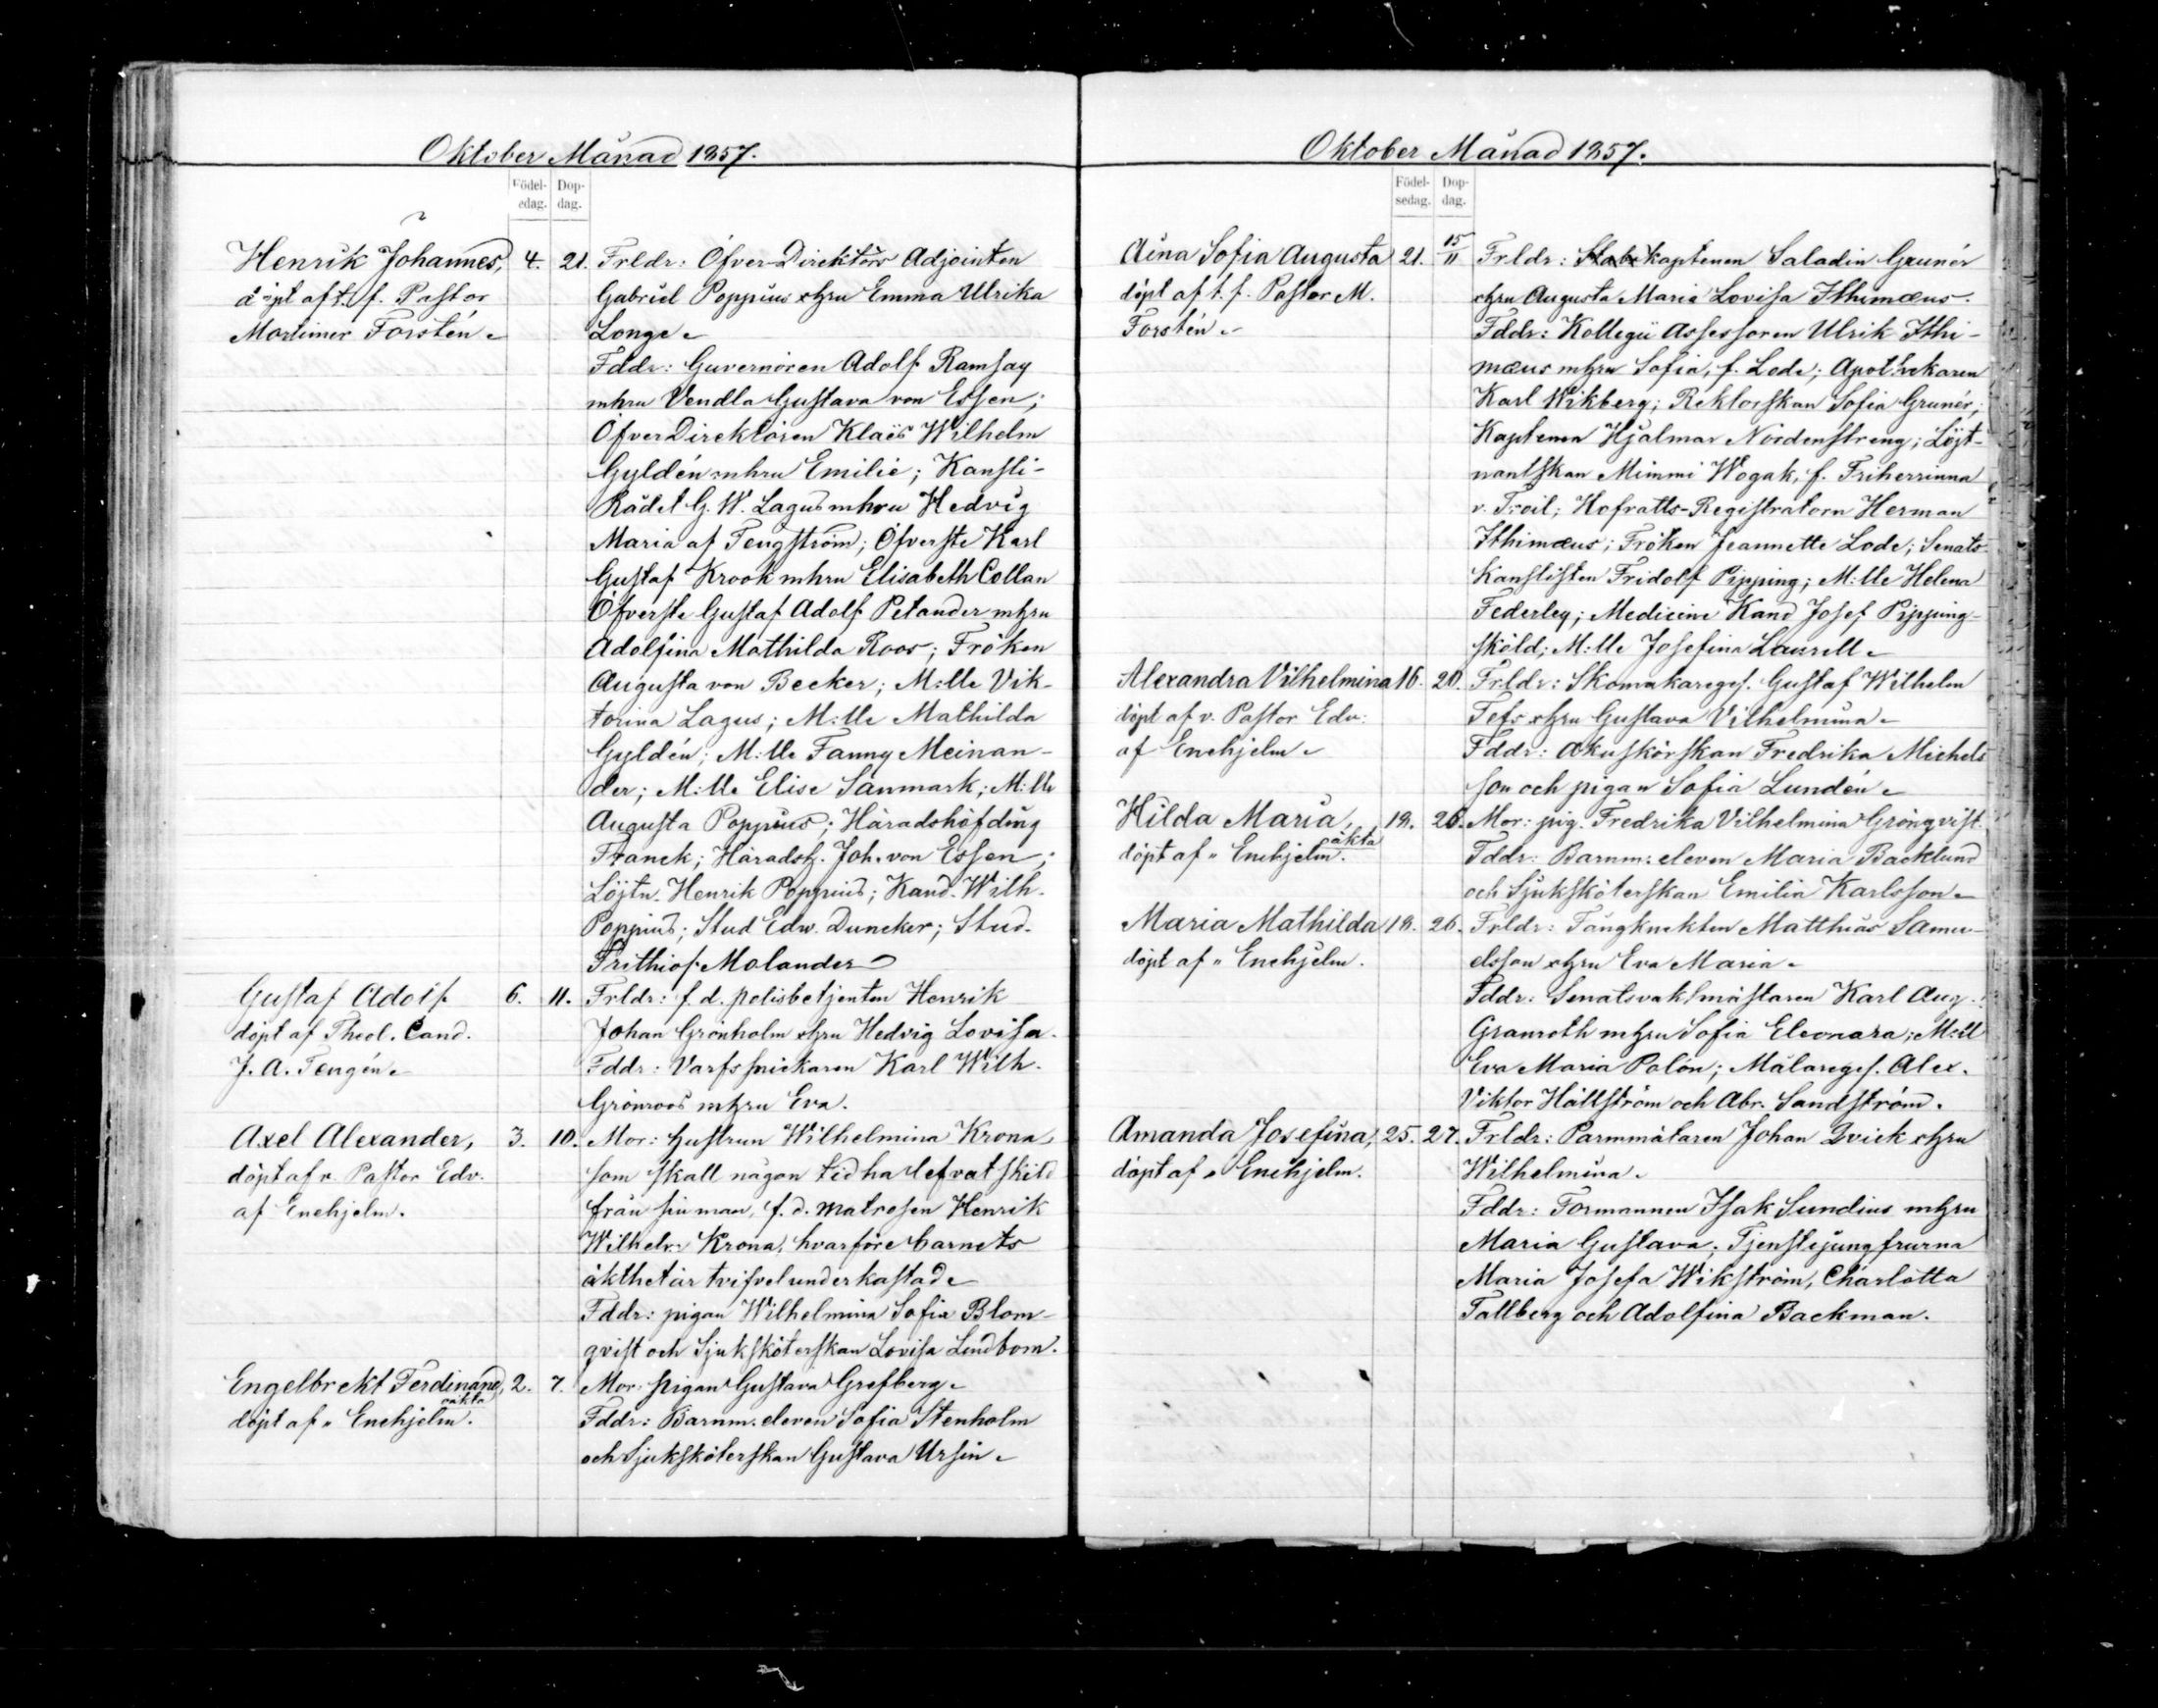 Oktober Månad 1857.
Födel-
sedag.
Dop-
dag.
Henrik Johannes,
döpt af t. f. Pastor
Mortimer Forstén
4.
21.
Frldr: Öfver-Direktörs Adjointen
Gabriel Poppius o/hru Emma Ulrika
Longe
Fddr: Guvernören Adolf Ramsay
mhru Vendla Gustava von Essen;
ÖfverDirektören Klaës Wilhelm
Gyldén mhru Emilie; Kansli-
Rådet G. W. Lagus mhru Hedvig
Maria af Tengström; Öfverste Karl
Gustaf Krook mhru Elisabeth Collan
Öfverste Gustaf Adolf Petander mhru
Adolfina Mathilda Roos; Fröken
Augusta von Becker; M:lle Vik-
torina Lagus; M:lle Mathilda
Gyldén; M:lle Fanny Meinan-
der; M:lle Elise Sanmark; M:lle
Augusta Poppius; Häradshöfding
Franck; Häradsh. Joh. von Essen;
Löjtn. Henrik Poppius; Kand. Wilh.
Poppius; Stud Edw. Duncker; Stud.
Frithiof Molander
Gustaf Adolf
döpt af Theol. Cand.
J. A. Tengén
6.
11.
Frldr: f. d. polisbetjenten Henrik
Johan Grönholm o/hru Hedvig Lovisa.
Fddr: Varfssnickaren Karl Wilh.
Grönroos mhru Eva.
Axel Alexander,
döpt af v. Pastor Edv.
af Enehjelm.
3.
10.
Mor: hustrun Wilhelmina Krona,
som skall någon tid ha lefvat skild
från sin man, f. d. matrosen Henrik
Wilhelm Krona, hvarföre barnets
äkthet är tvifvel underkastad
Fddr: pigan Wilhelmina Sofia Blom-
qvist och Sjuksköterskan Lovisa Lindbom.
Engelbrekt Ferdinand,
oäkta
döpt af " Enehjelm.
2.
7.
Mor: pigan Gustava Grefberg
Fddr: Barnm. eleven Sofia Stenholm
och Sjuksköterskan Gustava Ursin
Oktober Månad 1857.
Födel-
sedag.
Dop-
dag.
Aina Sofia Augusta
döpt af t. f. Pastor M.
Forstén
21.
15/11
Frldr: Stabskaptenen Saladin Grunér
o/hru Augusta Maria Lovisa Ithimæus.
Fddr: Kollegii Assessoren Ulrik Ithi-
mæus mhru Sofia, f. Lode; Apothekaren
Karl Wikberg; Rektorskan Sofia Grunér;
Kaptenen Hjalmar Nordenstreng; Löjt-
nantskan Mimmi Wogak, f. Friherrinna
v. Troil; Hofratts-Registratorn Herman
Ithimæus; Fröken Jeannette Lode; Senats-
Kanslisten Fridolf Pipping; M:lle Helena
Federley; Medicine Kand Josef Pipping-
sköld; M:lle Josefina Laurell
Alexandra Vilhelmina
döpt af v. Pastor Edv.
af Enehjelm
16.
20.
Frldr: Skomakareges. Gustaf Wilhelm
o/hru Gustava Vilhelmina
Fddr: Akuskörskan Fredrika Michels
son och pigan Sofia Lundén
Hilda Maria,
oäkta
döpt af " Enehjelm.
18.
26.
Mor: pig. Fredrika Vilhelmina Grönqvist.
Fddr: Barnm. eleven Maria Backlund
och Sjuksköterskan Emilia Karlsson
Maria Mathilda
döpt af " Enehjelm.
18.
26.
Frldr: Fångknekten Matthias Samu-
elsson o/hru Eva Maria
Fddr: Senatsvaktmästaren Karl Aug.
Granroth mhru Sofia Eleonara; M:ll
Eva Maria Polón; Målareges. Alex.
Viktor Hällström och Abr. Sandström.
Amanda Josefina,
döpt af " Enehjelm.
25.
27.
Frldr: Parmmätaren Johan Qvick o/hru
Wilhelmina
Fddr: Formannen Isak Sundius mhru
Maria Gustava; Tjenstejungfrurna
Maria Josefa Wikström, Charlotta
Tallberg och Adolfina Backman.